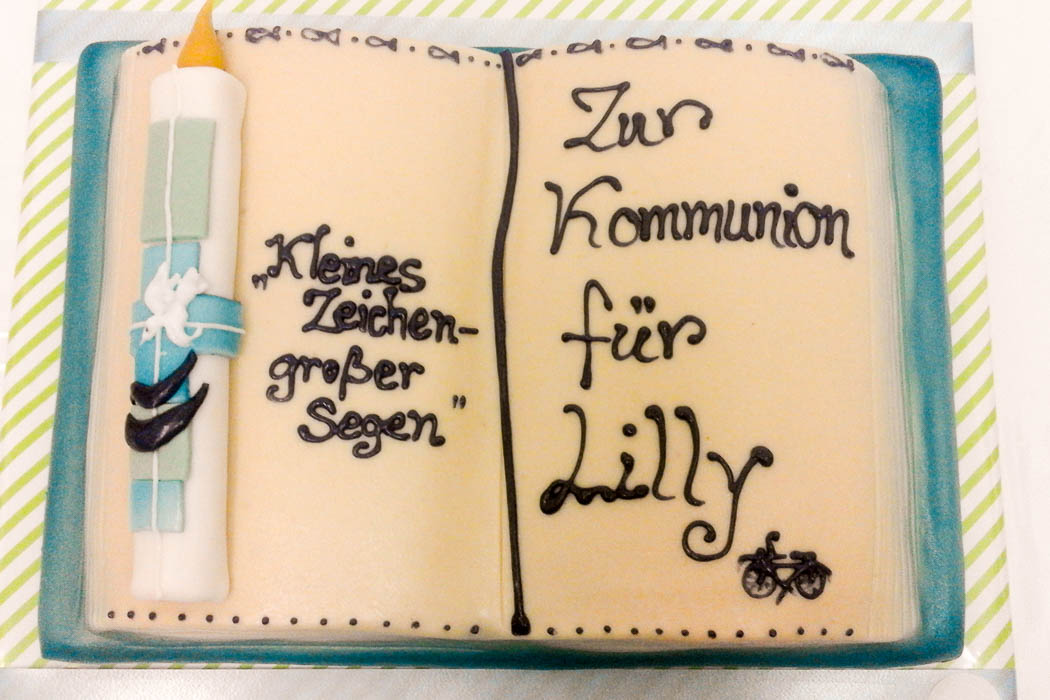 „Kleines
Zeichen-
großer
Segen"
Zur
Kommunion
für
Lilly